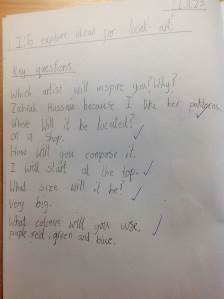 L.I: to explore ideas for local art.
Key questions.
Which artist will inspire you? Why?
Zahirah Hussain because I like her patterns.
Where will it be located?
on a shop.
How will you compose it.
I will start at the top.
What size will it be?
Very big.
What colours will you use.
purple, red, green and blue.